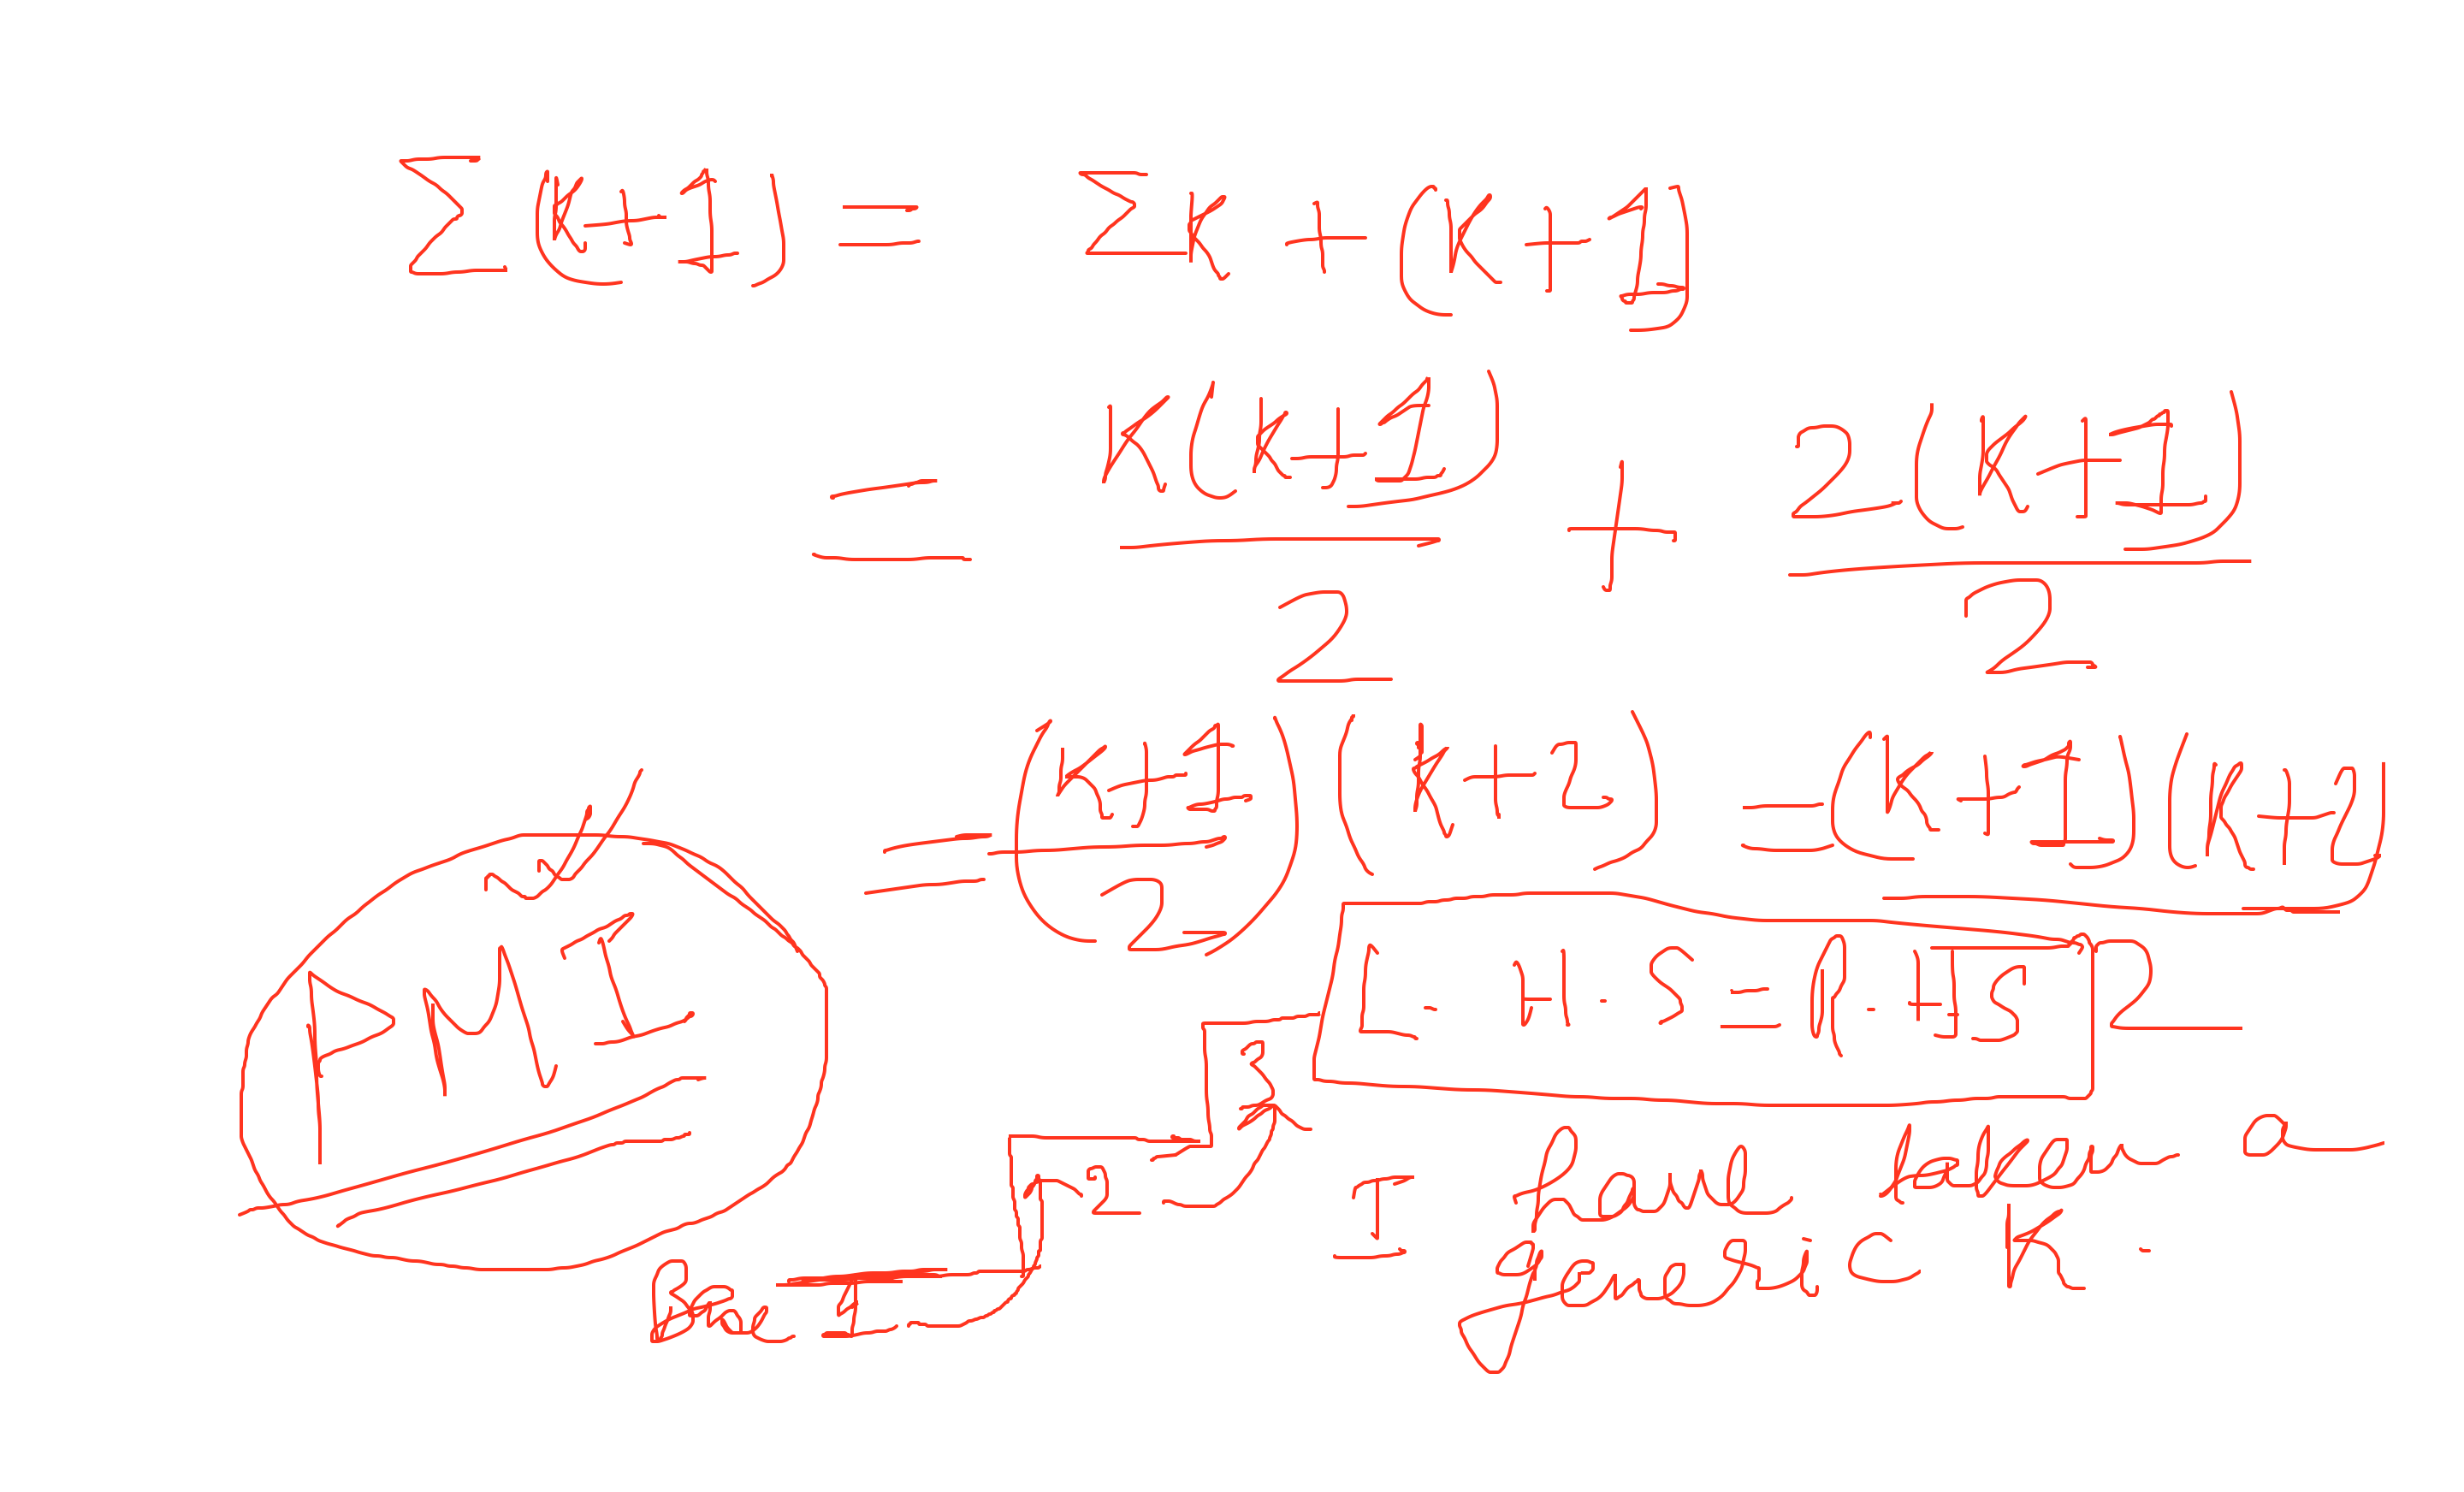 Σ(k+1) = Σk + (k+1)
= K(k+1)/2 + 2(k+1)/2
= (k+1/2)(k+2) = (k+1)(k+2)/2
L.H.S = R.H.S
PMI
1 → 2 → 3 →
I have taken a
generic K.